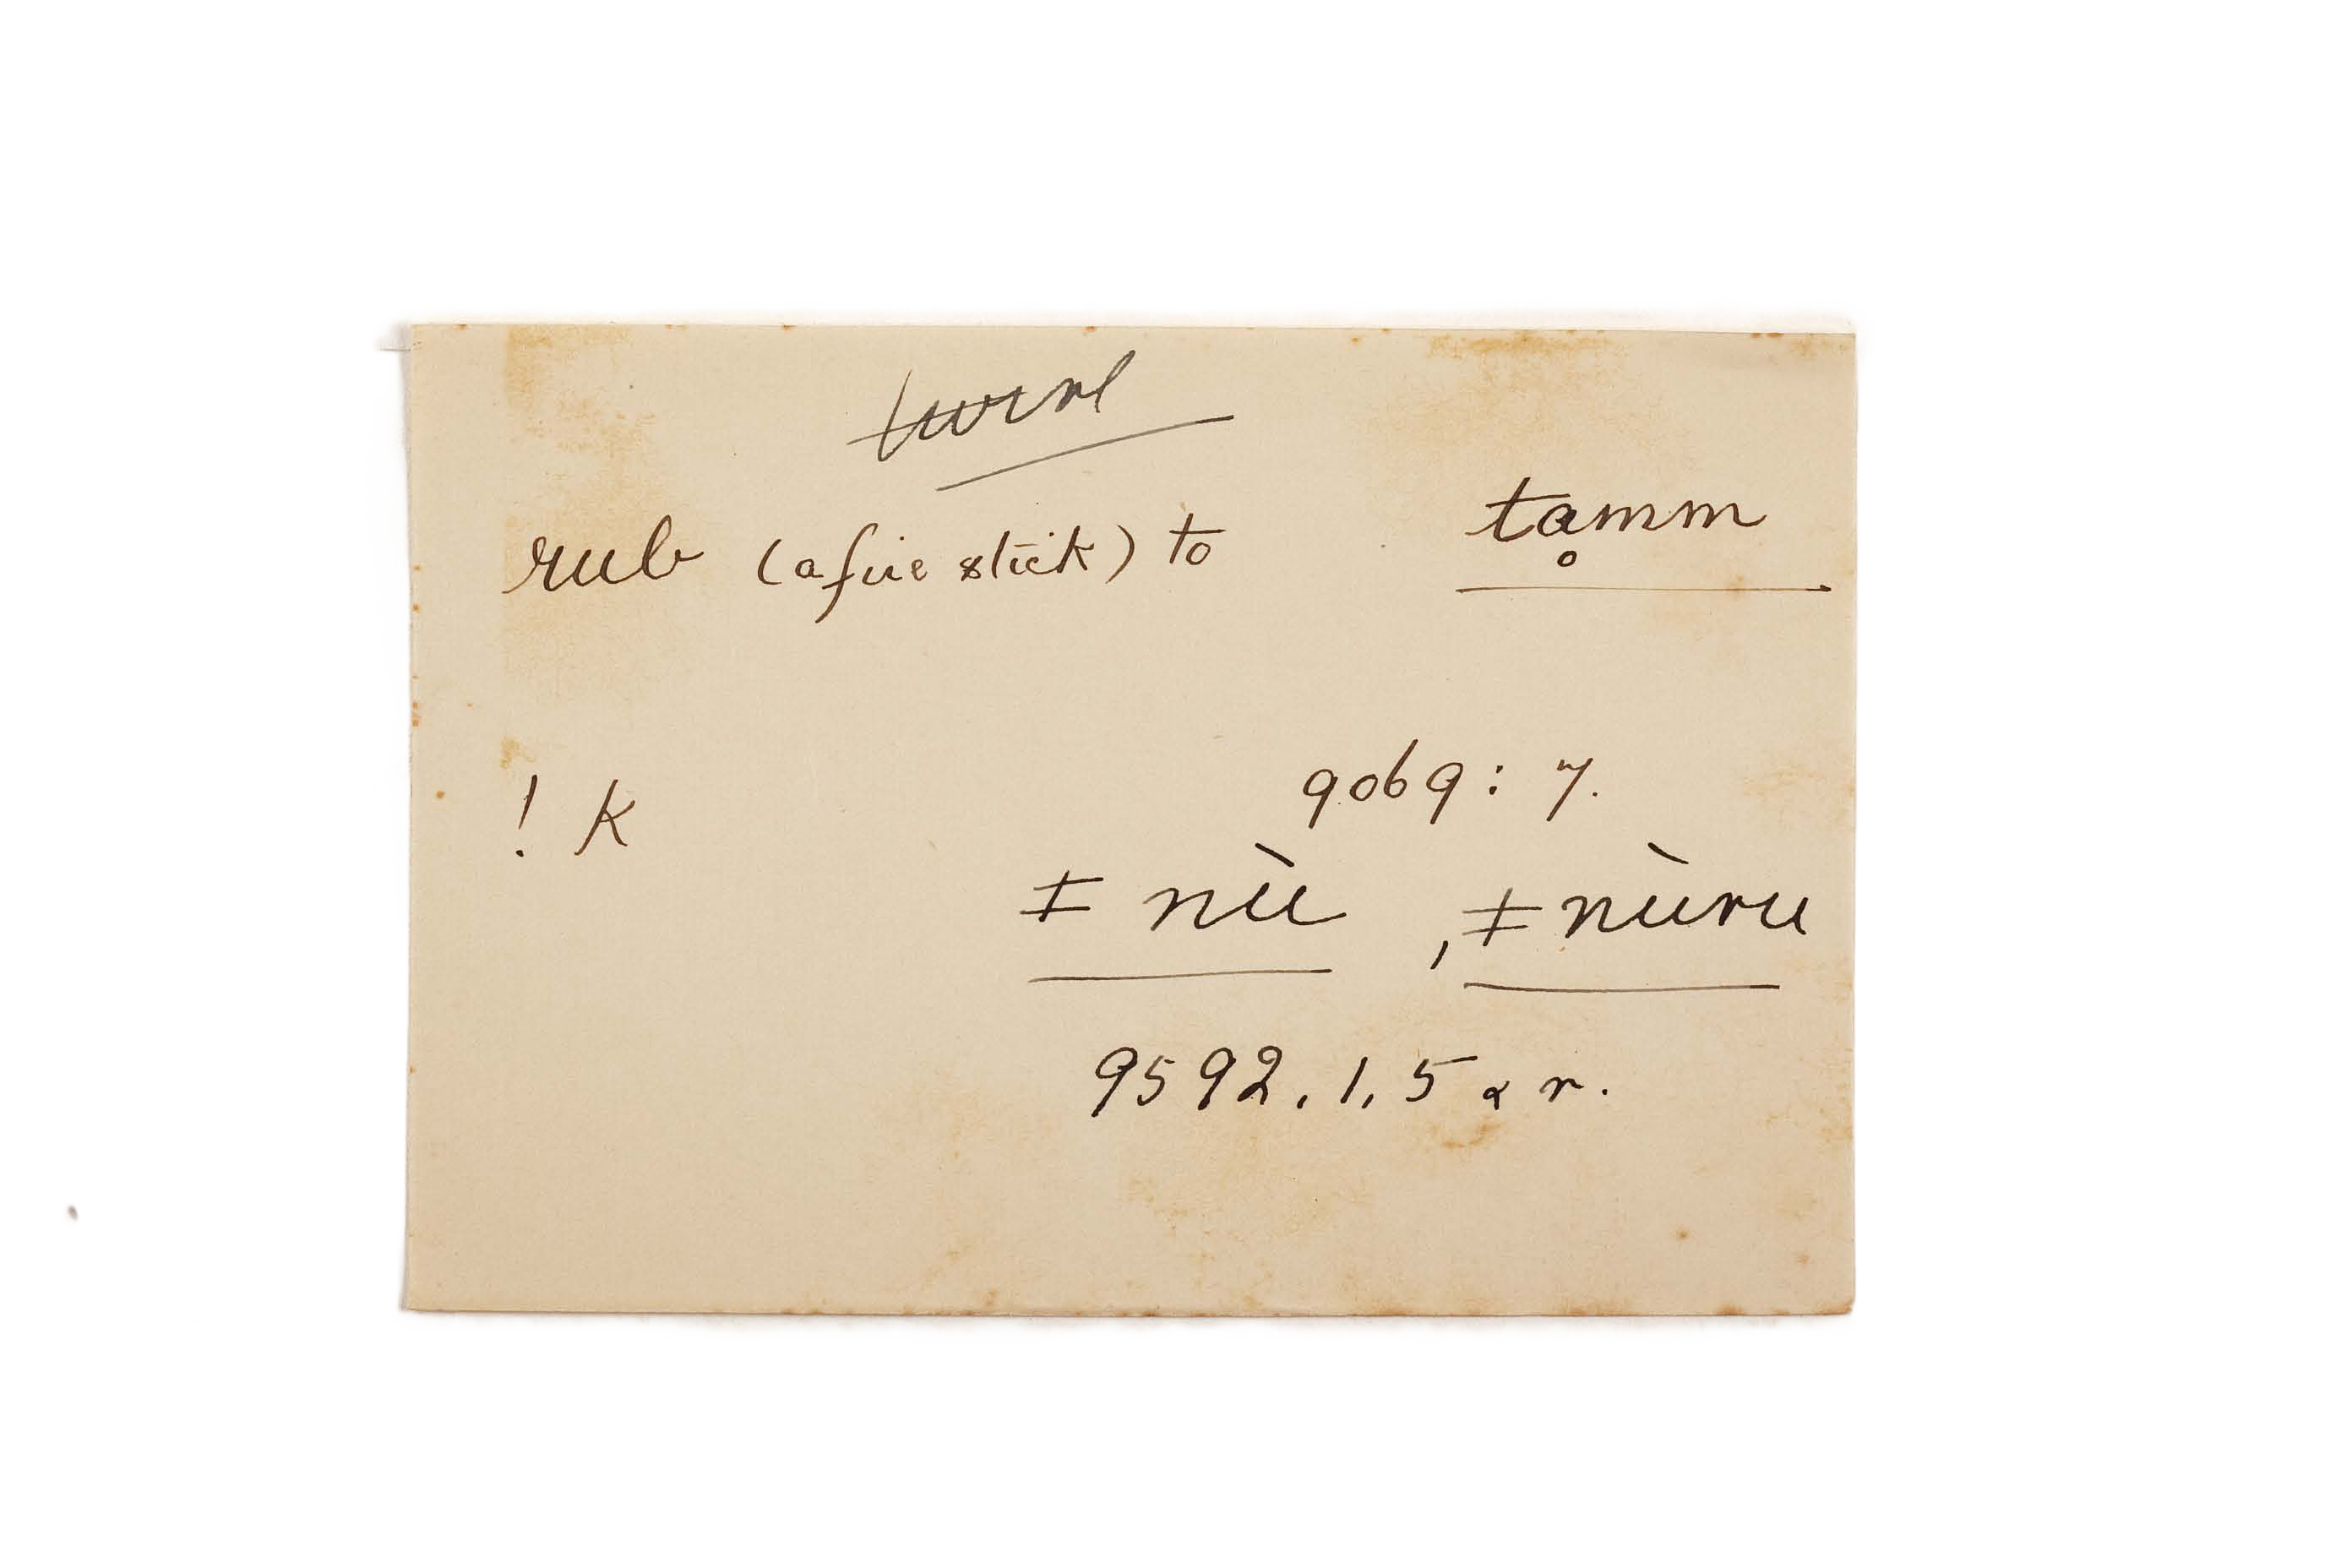 twirl
rub (a fire stick) to tḁmm
! k 9069 : 7.
ǂ nù , ǂ nùru
9592. 1. 5 & r.